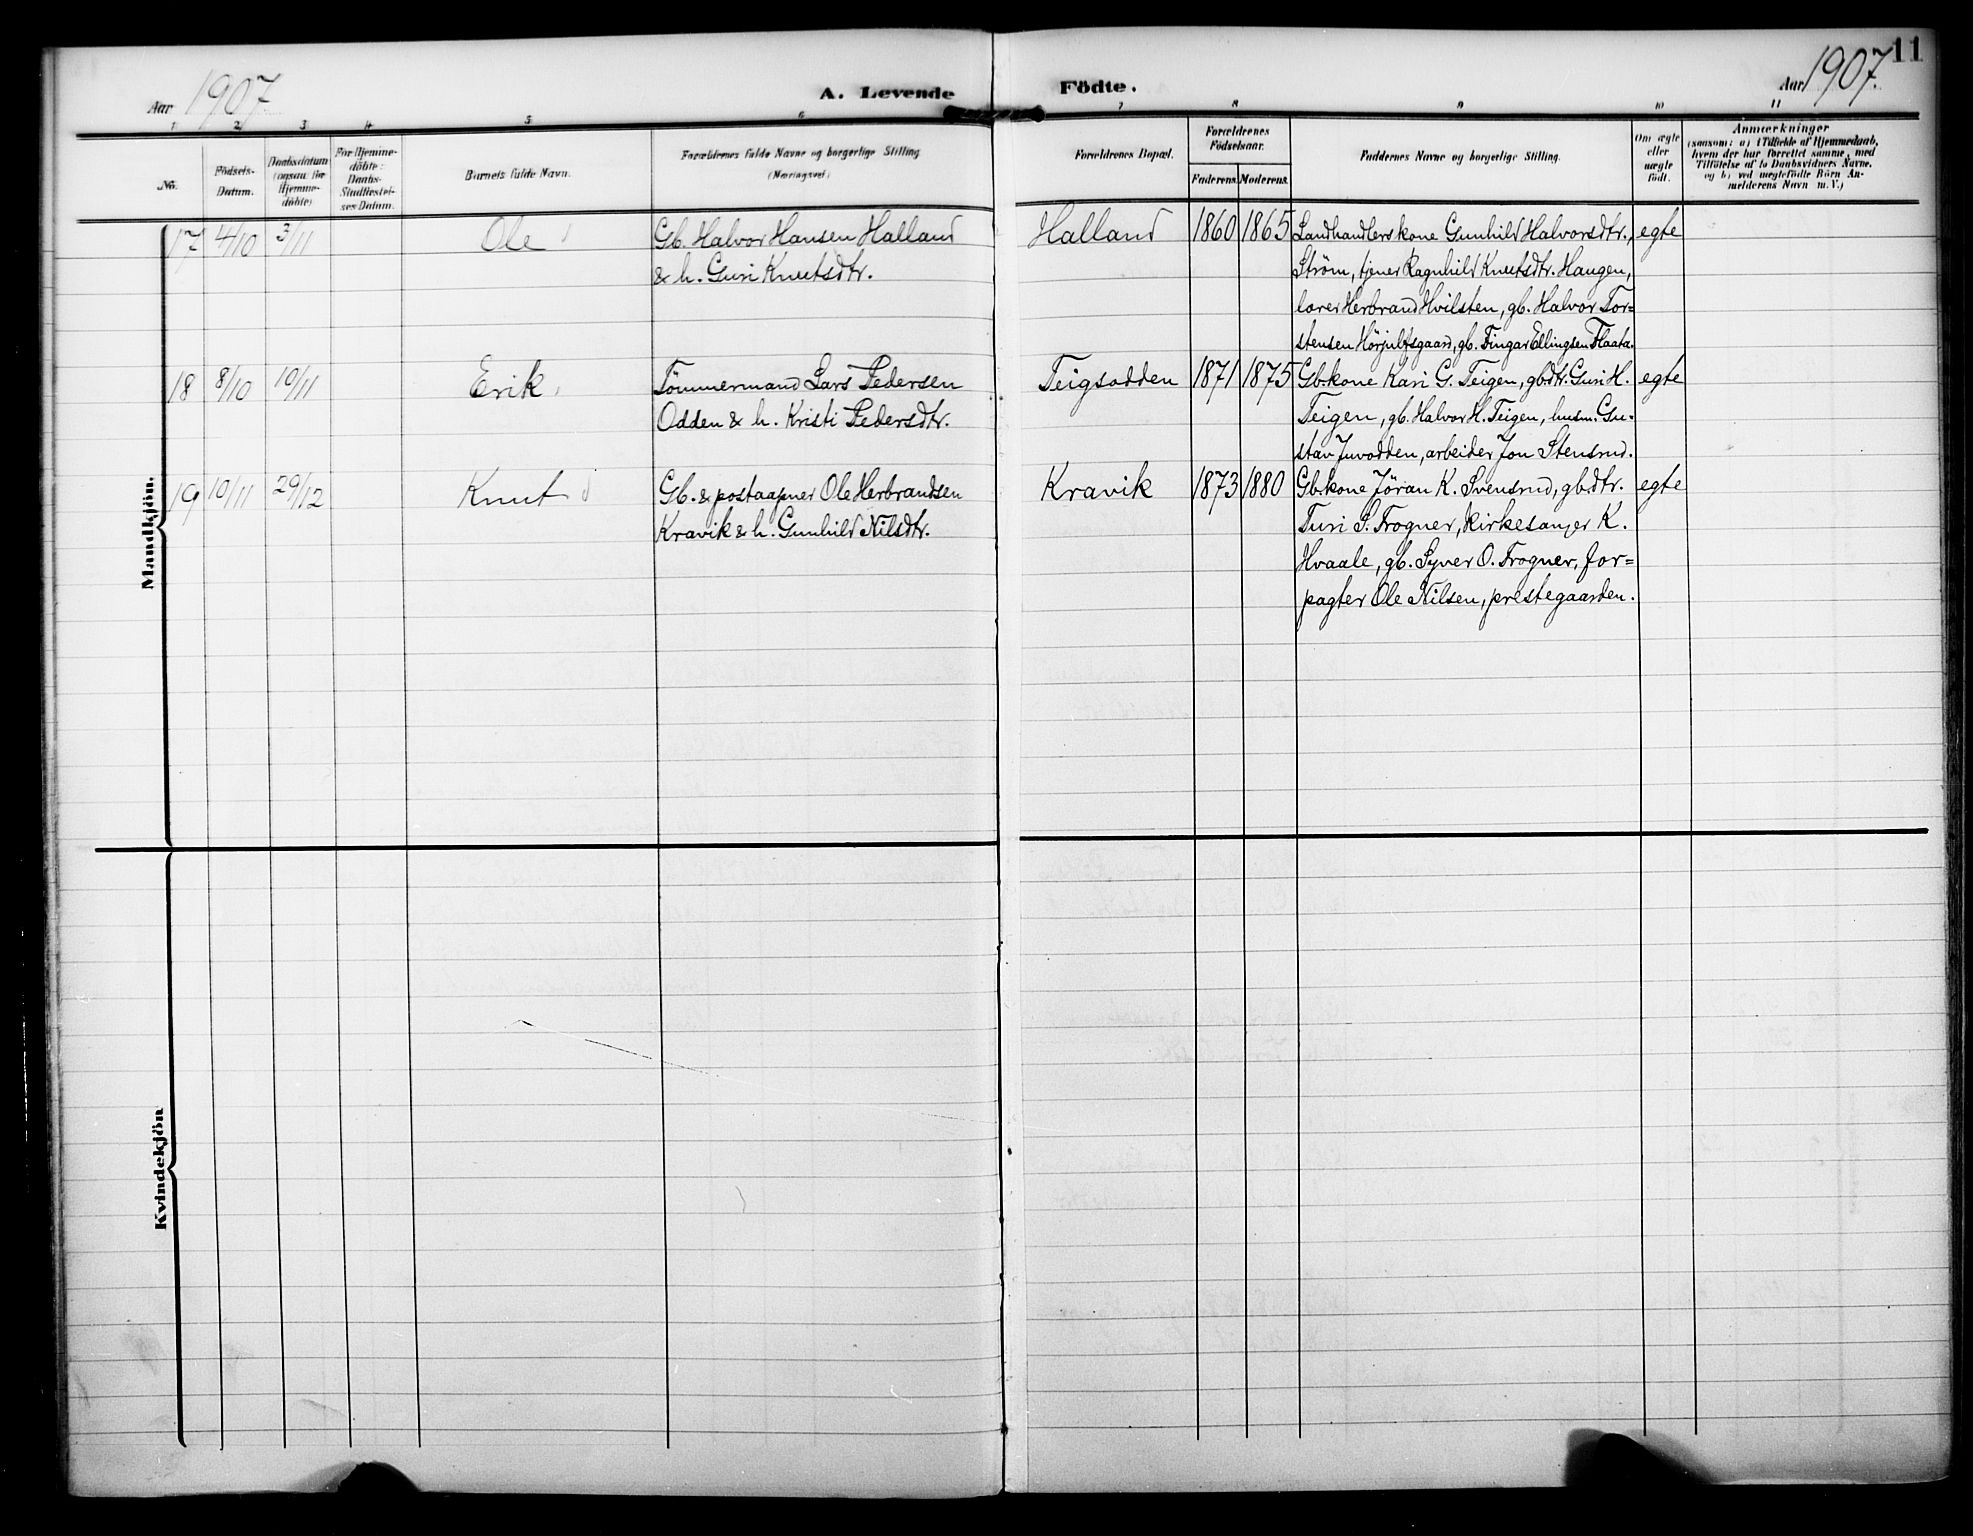 11
Aar 1907. A. Levende Födte. Aar 1907.
1 2 3 4 5 6 7 8 9 10 11
No.
Födsels-
Datum.
Daabsdatum
(ogsaa for
Hjemme-
döbte)
For Hjemme-
döbte:
Daabs-
Stadfæstel-
ses Datum.
Barnets fulde Navn.
Forældrenes fulde Navne og borgerlige Stilling
(Næringsvei)
Forældrenes Bopæl.
Forældrenes
Födselsaar.
Faderens. Moderens.
Faddernes Navne og borgerlige Stilling.
Om ægte
eller
uægte
födt.
Anmærkninger
(saasom: a) i Tilfælde af Hjemmedaab,
hvem der har forrettet samme, med
Tilföielse af to Daabsvidners Navne,
og b) ved uægtefödte Börn An-
melderens Navn m. V.)
Mandkjön.
17 4/10 3/11 Ole Gb. Halvor Hansen Halland Halland 1860 1865 Landhandlerskone Gunhild Halvorsdtr., egte
& h. Guri Knutsdtr. Ström, tjener Ragnhild Knutsdtr. Haugen,
lærer Herbrand Hvilsten, gb. Halvor Tor=
stensen Hörjulfsgaard, gb. Fingar Ellingsen Flaata.
18 8/10 10/11 Erik Tömmermand Lars Pedersen Teigsodden 1871 1875 Gb.kone Kari G. Teigen, gb.dtr. Guri H. egte
Odden & h. Kristi Pedersdtr. Teigen, gb. Halvor H. Teigen, husm. Gu-
stav Juvodden, arbeider Jon Stensrud.
19 10/11 29/12 Knut Gb. & postaapner Ole Herbrandsen Kravik 1873 1880 Gb.kone Jöran K. Svensrud, gb.dtr. egte
Kravik & h. Gunhild Nilsdtr. Turi S. Frogner, kirkesanger K.
Hvaale, gb. Syver O. Frogner, for=
pagter Ole Nilsen, prestegaarden.
Kvindekjön